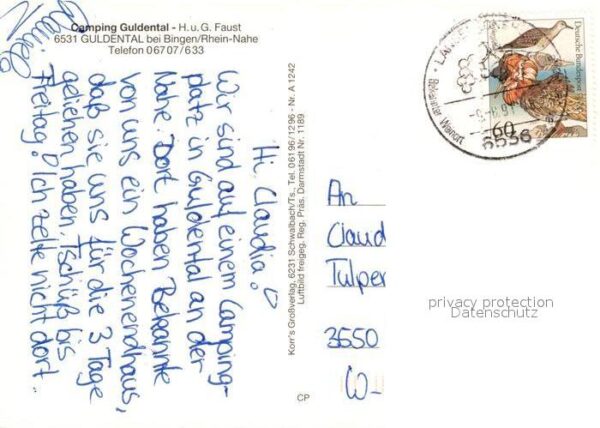 Camping Guldental - H.u.G. Faust
6531 GULDENTAL bei Bingen/Rhein-Nahe
Telefon 06707/633
Hi Claudia!
Wir sind auf einem Camping-
platz in Guldental an der
Nahe. Dort haben Bekannte
von uns ein Wochenendhaus,
daß sie uns für die 3 Tage
geliehen haben. Tschüß bis
Freitag! Ich zelte nicht dort.
Korr's Großverlag, 6231 Schwalbach/Ts., Tel. 06196/1296 - Nr. A 1242
Luftbild freigeg. Reg. Präs. Darmstadt Nr. 1189
CP
An
Claud
Tulpen
3550
W-
Deutsche Bundespost
60
Bekannter Weinort
6536
privacy protection
Datenschutz